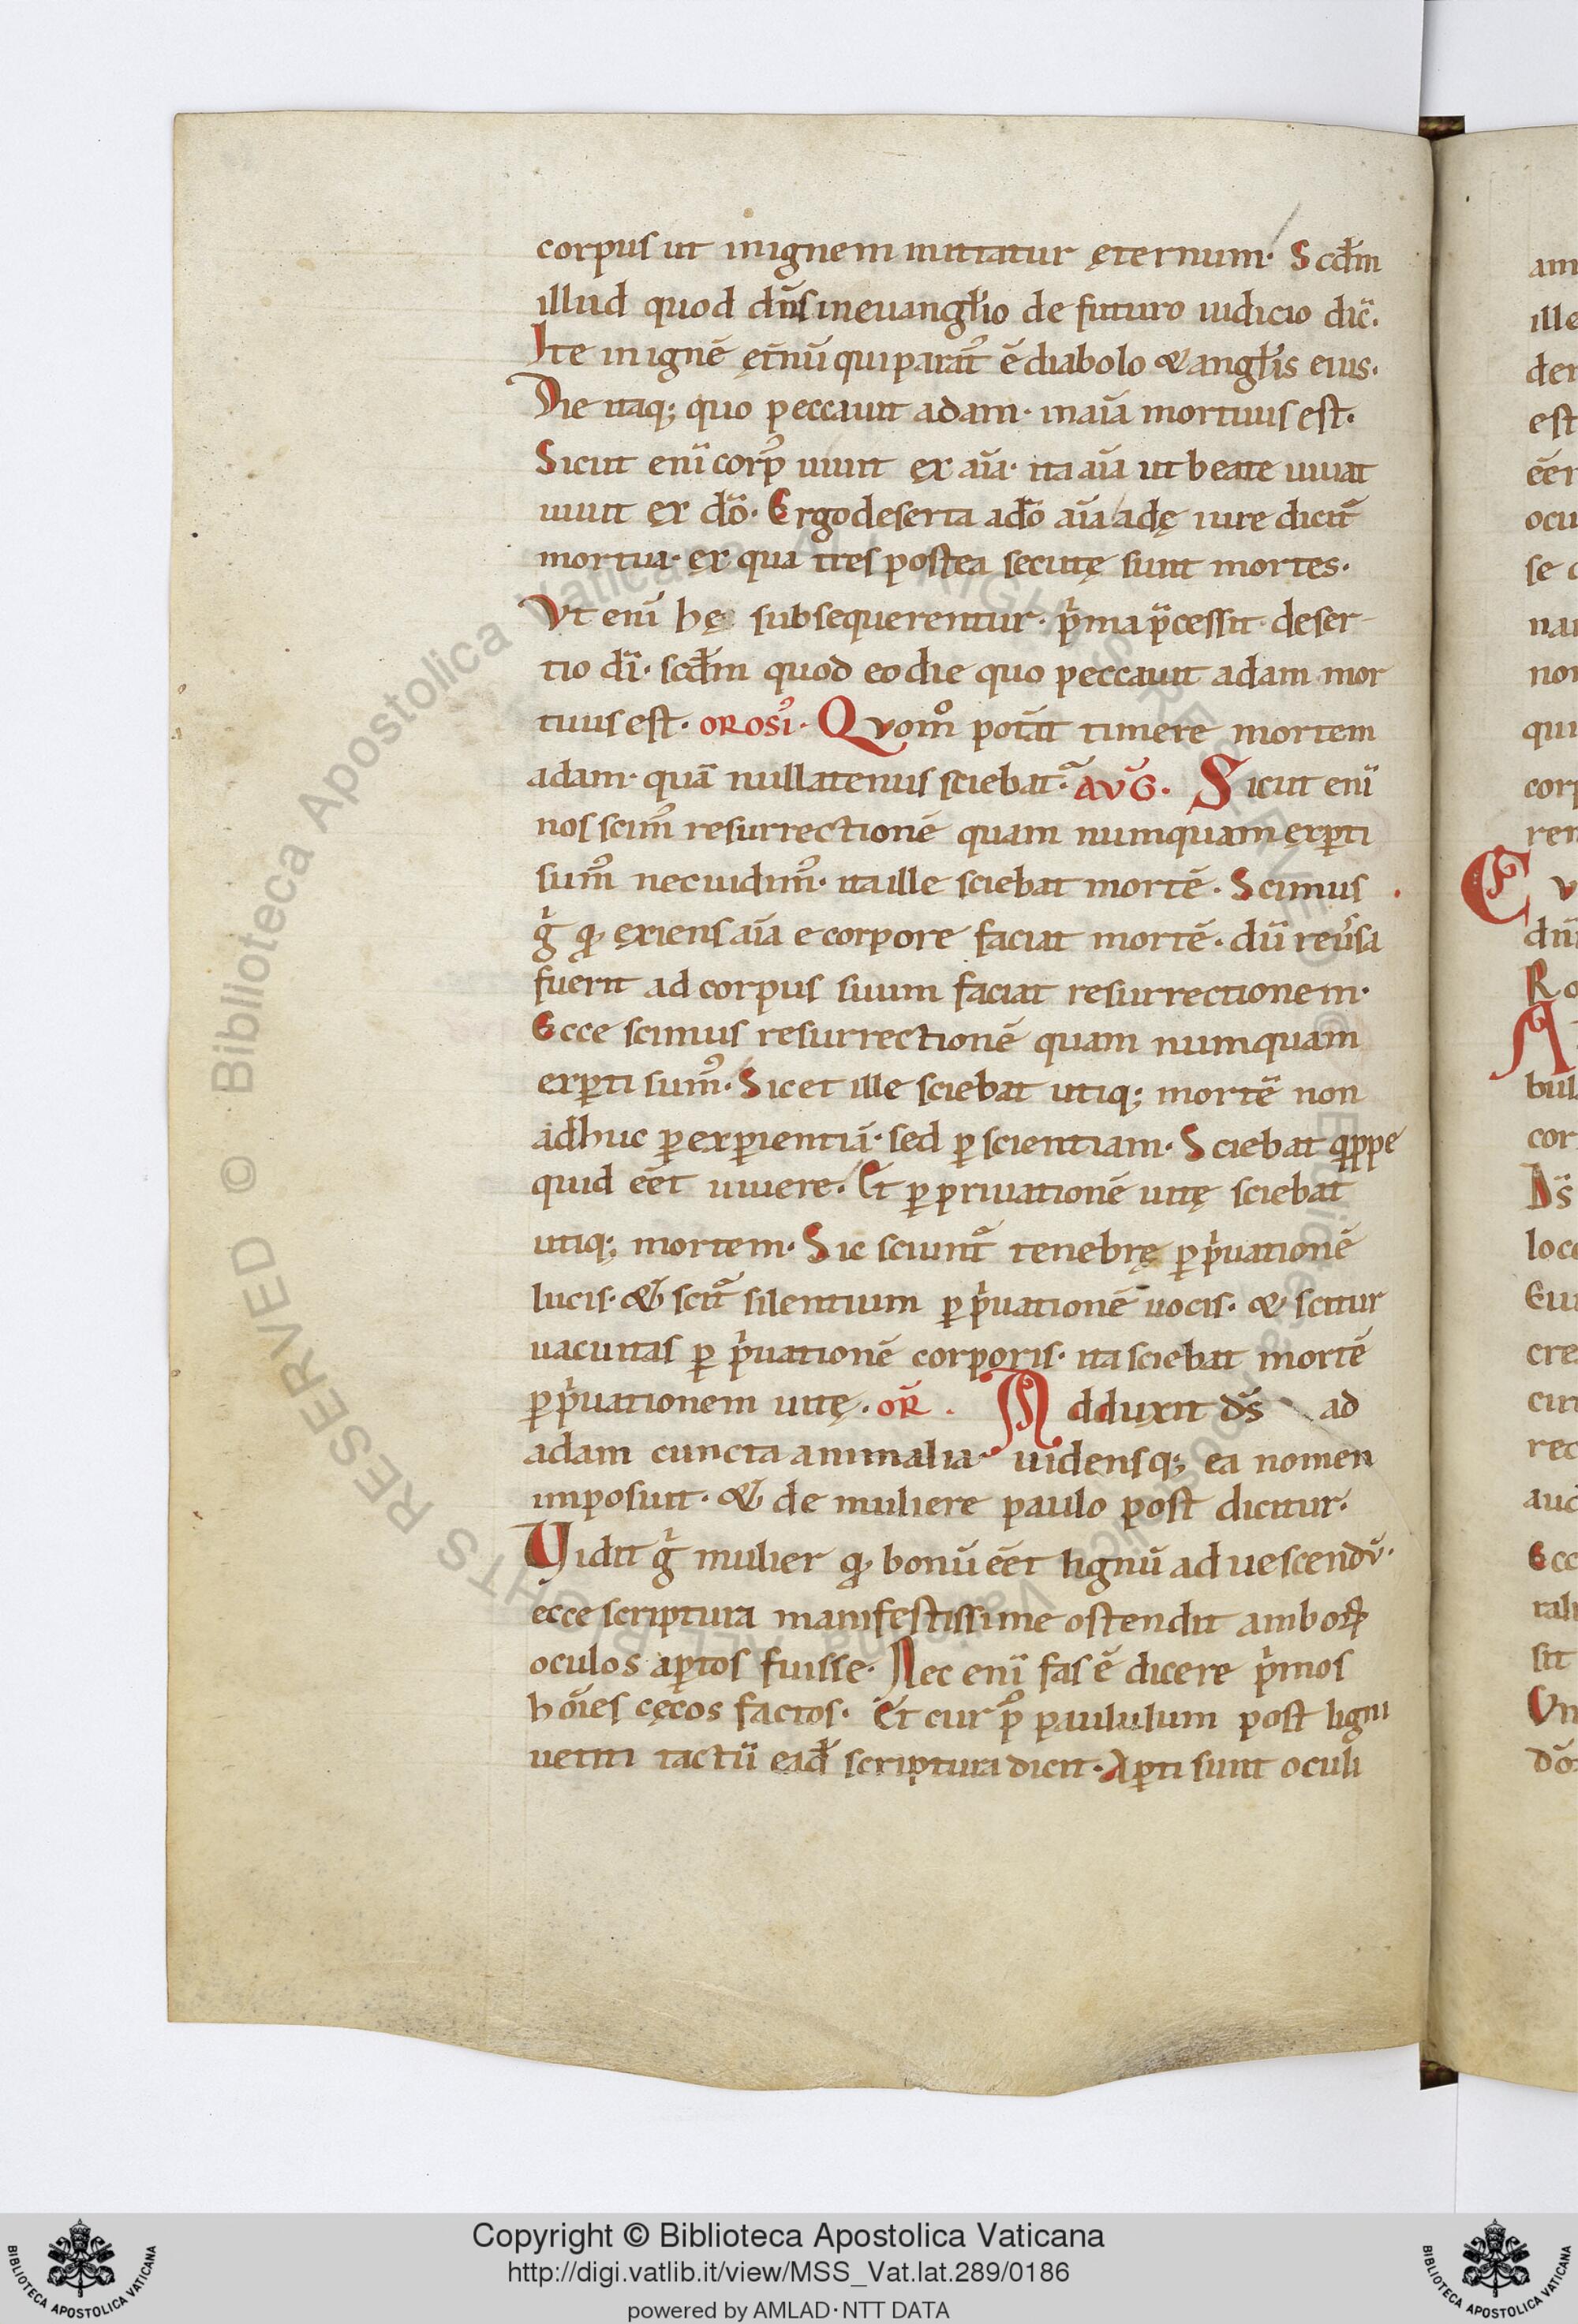 corpus ut in ignem mittatur ęternum· Scdm̄
illud quod dn̄s in euangłio de futuro iudicio dic̄.
Ite in ignē ęt̄nū qui parat᷒ ē diabolo & angłis eius·
Die itaq; quo peccauit adam· in aīa mortuus est·
Sicut enī corp᷒ uiuit ex aīa· ita aīa ut beate uiuat
uiuit ex dō· Ergo deserta a dō aīa adę iure dicit᷑
mortua· ex qua tres postea secutę sunt mortes·
Vt enī hę subsequerentur· pͥma p̄cessit deser-
tio dī· scdm̄ quod eo die quo peccauit adam mor
tuus est· OROSI᷒· Quom̊ pot̄at timere mortem
adam· quā nullatenus sciebat· AVḠ. Sicut enī
nos scim᷒ resurrectionē quam numquam exꝑti
sum᷒ nec uidim᷒· ita ille sciebat mortē· Scimus
gͥ ꝙ exiens aīa e corpore faciat mortē· dū reu̓sa
fuerit ad corpus suum faciat resurrectionem·
Ecce scimus resurrectionē quam numquam
exꝑti sum᷒· Sic et ille sciebat utiq; mortē non
adhuc ꝑ exꝑientiā· sed ꝑ scientiam· Sciebat qͥppe
quid eēt uiuere· Et ꝑ priuationē uitę sciebat
utiq; mortem· Sic sciunt᷑ tenebrę ꝑ pͥuationē
lucis· & scit᷑ silentium ꝑ pͥuationē uocis· & scitur
uacuitas ꝑ pͥuationē corporis· ita sciebat mortē
ꝑ pͥuationem uitę· OR̄. Adduxit ds̄ ad
adam cuncta animalia· uidensq; ea nomen
imposuit· & de muliere paulo post dicitur·
Vidit gͥ mulier ꝙ bonū eēt lignū ad uescendū·
ecce scriptura manifestissime ostendit amboꝝ
oculos aꝑtos fuisse· Nec enī fas ē dicere pͥmos
hoīes cęcos factos· Et cur p᷒ paululum post ligni
uetiti tactū ead̄ scriptura dicit· Aꝑti sunt oculi
Copyright © Biblioteca Apostolica Vaticana
http://digi.vatlib.it/view/MSS_Vat.lat.289/0186
powered by AMLAD·NTT DATA